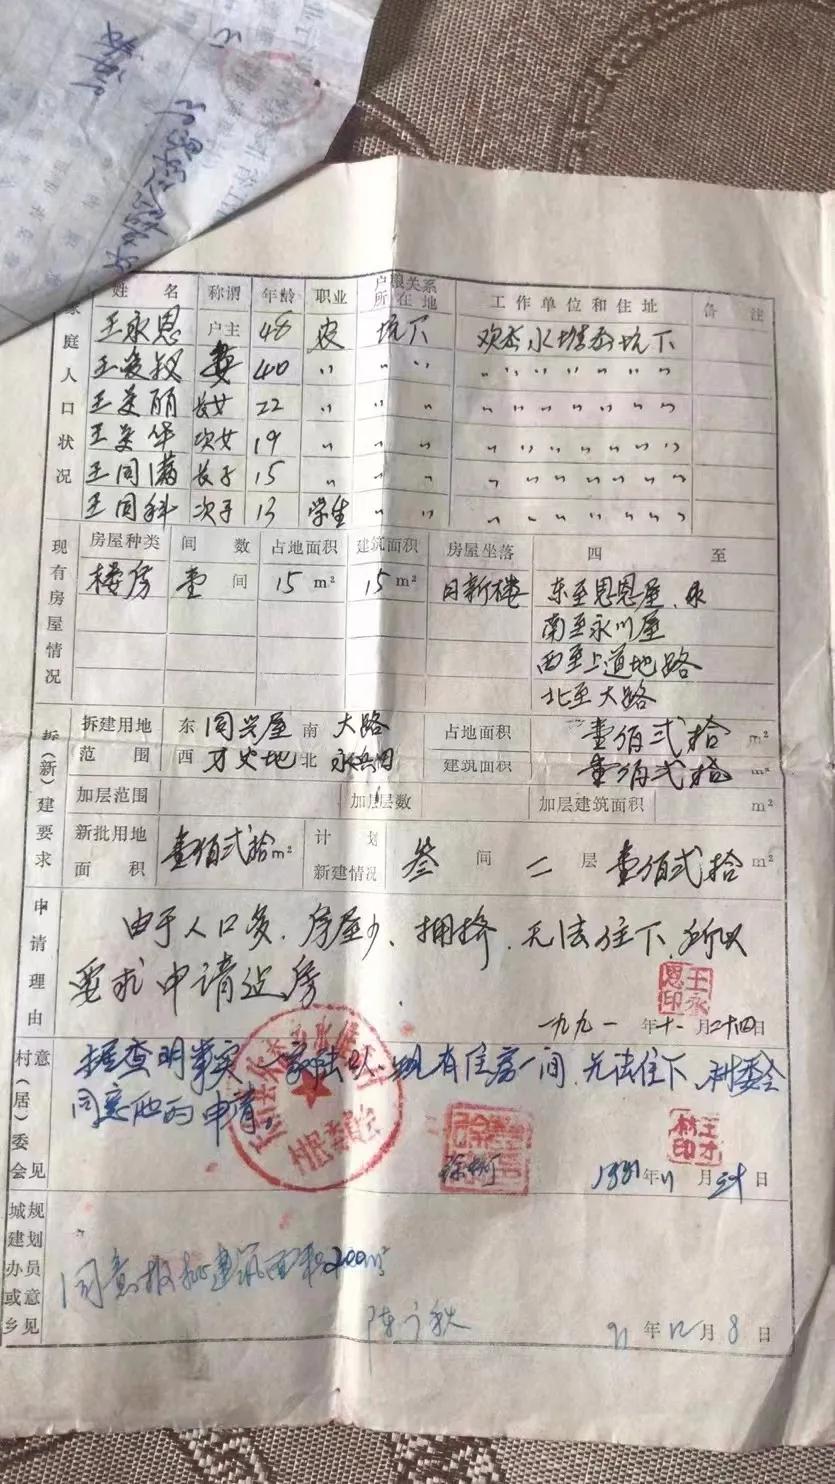 姓 名 称谓 年龄 职业 户粮关系所在地 工作单位和住址 备 注
家庭人口状况
王永恩 户主 48 农 坑下
妻 40 〃 〃 〃
王美丽 长女 22 〃 〃 〃
王美华 次女 19 〃 〃 〃
王同满 长子 15 〃 〃 〃
王同科 次子 13 学生 〃 〃
现有房屋情况
房屋种类 间 数 占地面积 建筑面积 房屋坐落 四 至
楼房 壹 间 15 m² 15 m² 日新楼 东至恩恩屋、
南至永川屋
西至上道地路
北至大路
拆(新)建要求
拆建用地范 围 东 同兴屋 南 大路 占地面积 壹佰弍拾 m²
西 北 建筑面积 壹佰弍拾 m²
加层范围 加层层数 加层建筑面积 m²
新批用地面 积 壹佰弍拾 m² 计 划新建情况 叁 间 二 层 壹佰弍拾 m²
申请理由
由于人口多、房屋少、拥挤、无法住下、所以
要求申请造房
王永恩印
一九九一 年 十一 月 二十四 日
村(居)委会意见
据查明事实 现有住房一间、无法住下、村委会
同意他的申请。
村民委员会
王才林印
1991 年 11 月 日
城建办或乡规划员意见
同意报批建筑面积200m²
91 年 12 月 8 日